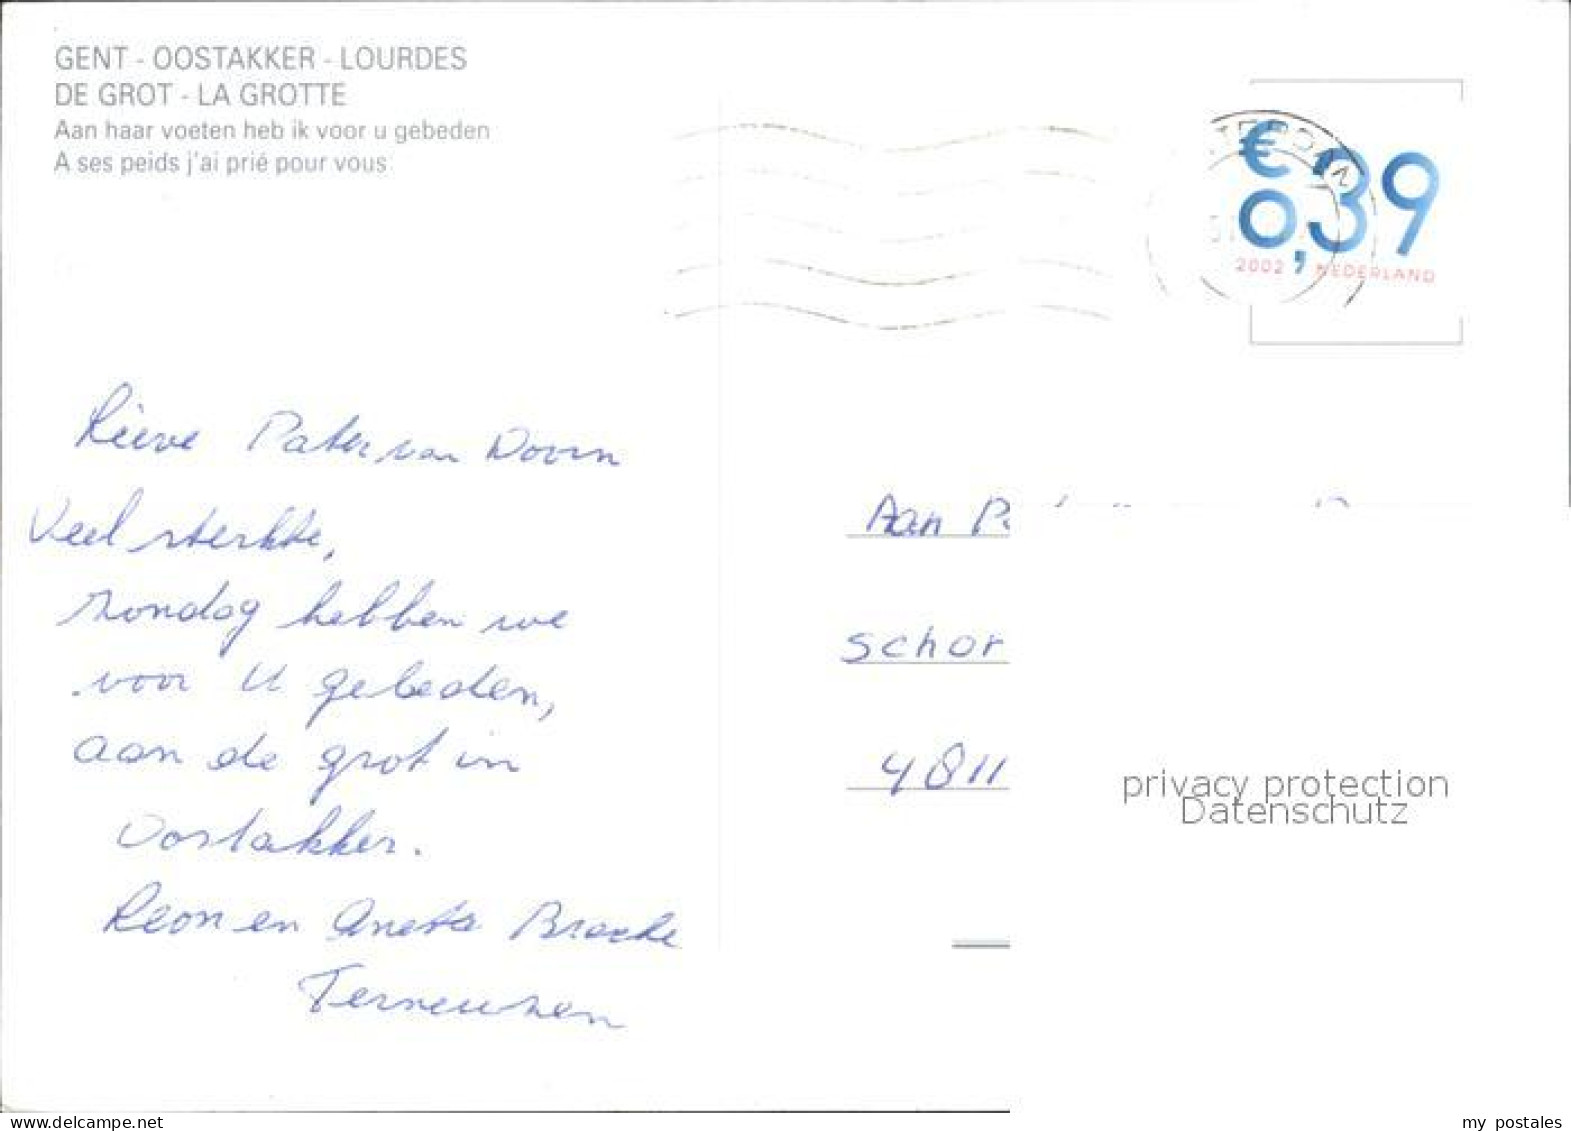 GENT - OOSTAKKER - LOURDES
DE GROT - LA GROTTE
Aan haar voeten heb ik voor u gebeden
A ses peids j'ai prié pour vous.
€
0,39
2002 NEDERLAND
Lieve Pater van Doorn
Veel sterkte,
zondag hebben we
voor U gebeden,
aan de grot in
Oostakker.
Leon en Aneta
Terneuzen
Aan
schor
4811
privacy protection
Datenschutz
my_postales
delcampe.net